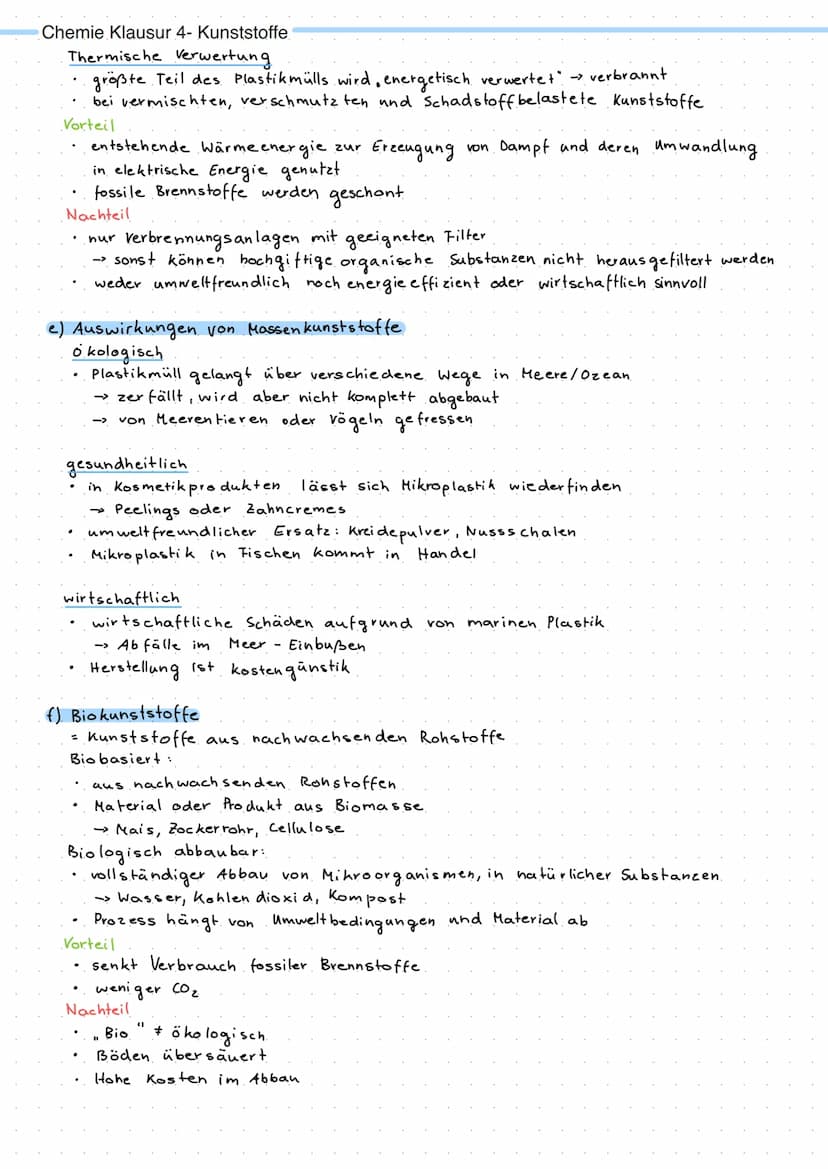 Chemie Klausur 4- Kunststoffe
Thermische Verwertung
· größte Teil des Plastikmülls wird „energetisch verwertet" → verbrannt
· bei vermischten, verschmutzten und Schadstoffbelastete Kunststoffe
Vorteil
· entstehende Wärmeenergie zur Erzeugung von Dampf und deren Umwandlung
in elektrische Energie genutzt
· fossile Brennstoffe werden geschont
Nachteil
· nur Verbrennungsanlagen mit geeigneten Filter
→ sonst können hochgiftige organische Substanzen nicht herausgefiltert werden
· weder umweltfreundlich noch energieeffizient oder wirtschaftlich sinnvoll
e) Auswirkungen von Massenkunststoffe
ökologisch
· Plastikmüll gelangt über verschiedene Wege in Meere/Ozean
→ zerfällt, wird aber nicht komplett abgebaut
→ von Meerentieren oder Vögeln gefressen
gesundheitlich
· in Kosmetikprodukten lässt sich Mikroplastik wiederfinden
→ Peelings oder Zahncremes
· umweltfreundlicher Ersatz: Kreidepulver, Nussschalen
· Mikroplastik in Fischen kommt in Handel
wirtschaftlich
· wirtschaftliche Schäden aufgrund von marinen Plastik
→ Abfälle im Meer - Einbußen
· Herstellung ist kostengünstik
f) Biokunststoffe
= Kunststoffe aus nachwachsenden Rohstoffe
Biobasiert:
· aus nachwachsenden Rohstoffen
· Material oder Produkt aus Biomasse
→ Mais, Zockerrohr, Cellulose
Biologisch abbaubar:
· vollständiger Abbau von Mikroorganismen, in natürlicher Substanzen
→ Wasser, Kohlendioxid, Kompost
· Prozess hängt von Umweltbedingungen und Material ab
Vorteil
· senkt Verbrauch fossiler Brennstoffe
· weniger CO₂
Nachteil
· „Bio" ≠ ökologisch
· Böden übersäuert
· Hohe Kosten im Abbau